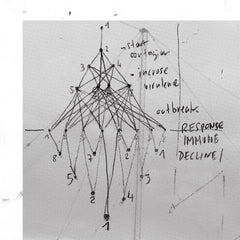 1
2
- start
contagion
3 4
- increase
virulence
5
outbreak
RESPONSE
IMMUNE
DECLINE/
1 2 1
8 7
5 3
2 4
1